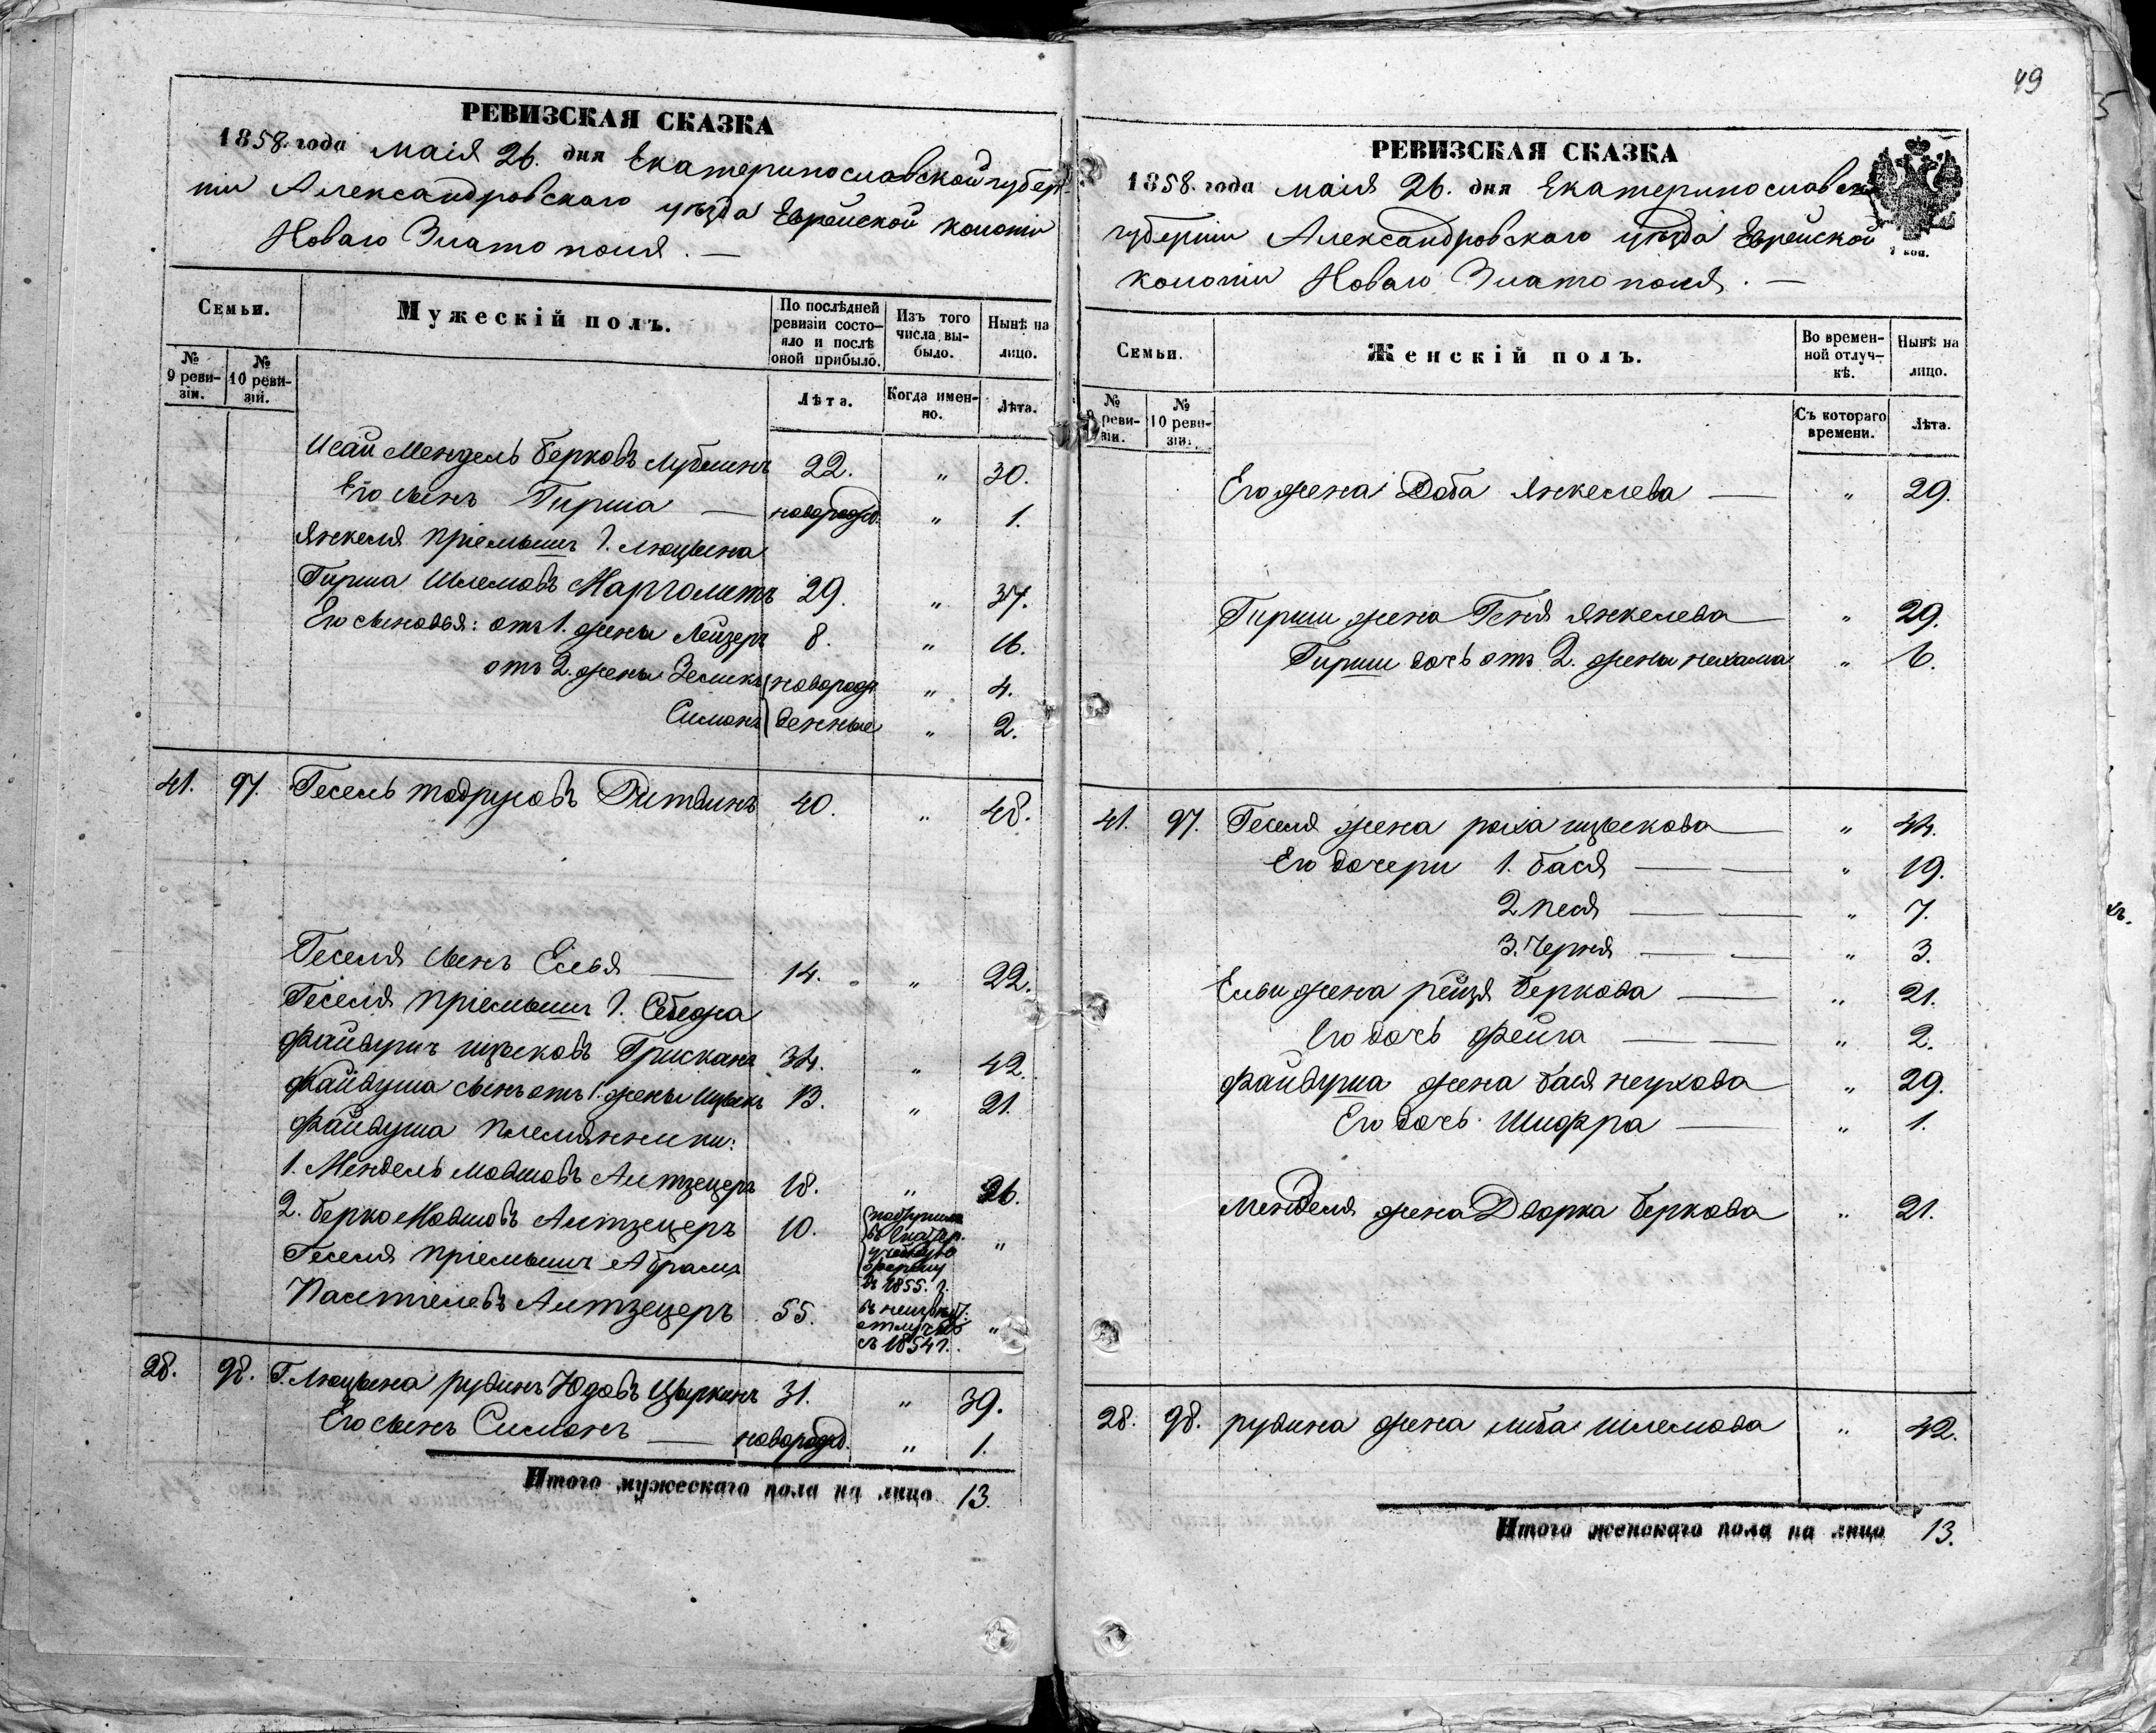 РЕВИЗСКАЯ СКАЗКА
1858. года маія 26. дня Екатеринославской губер-
ніи Александровскаго уѣзда Еврейской колоніи
Новаго Златополя. —
Семьи.
Мужескій полъ.
По послѣдней ревизіи состо-
яло и послѣ оной прибыло.
Изъ того числа вы-
было.
Нынѣ на лицо.
№ 9 реви-
зіи.
№ 10 реви-
зій.
Лѣта.
Когда имен-
но.
Лѣта.
Исай Мендель Берковъ Лублинъ 22. " 30.
Его сынъ Гирша — новорожд. " 1.
Янкеля пріемышъ г. Люцына
Гирша Шлемовъ Марголитъ 29. " 37.
Его сыновья: отъ 1. жены Лейзеръ 8. " 16.
отъ 2. жены Зеликъ новорож " 4.
Симонъ денные " 2.
41. 97. Гесель Тодрусовъ 40. " 48.
Геселя сынъ Елья — 14. " 22.
Геселя пріемышъ г. Себежа
Файвушъ Ицыковъ 34. " 42.
Файвуша сынъ отъ 1. жены Ицыкъ 13. " 21.
Файвуша племянники:
1. Мендель Мовшовъ Алтзецеръ 18. " 26.
2. Берко Мовшовъ Алтзецеръ 10. "
въ 1855. г.
Геселя пріемышъ Абрамъ
Палтіелевъ Алтзецеръ 55. въ неизвѣст. отлучкѣ съ 1854 г. "
28. 98. Г. Люцына Рувинъ Юдовъ Цыркинъ 31. " 39.
Его сынъ Симонъ — новорожд. " 1.
Итого мужескаго пола на лицо 13.
49
РЕВИЗСКАЯ СКАЗКА
1858. года маія 26. дня Екатеринославской
губерніи Александровскаго уѣзда Еврейской
колоніи Новаго Златополя. —
коп.
Семьи.
Женскій полъ.
Во времен-
ной отлуч-
кѣ.
Нынѣ на лицо.
№ 9 реви-
зіи.
№ 10 реви-
зіи.
Съ котораго времени.
Лѣта.
Его жена Доба Янкелева — " 29.
Гирши жена Геня Янкелева — " 29.
Гирши дочь отъ 2. жены Нехама " 6.
41. 97. Геселя жена Роха Ицыкова — " 44.
Его дочери 1. Бася — — " 19.
2. Песя — — " 7.
3. Черня — — " 3.
Ельи жена Рейзя Беркова — " 21.
Его дочь Фейга — — " 2.
Файвуша жена Бася Неухова " 29.
Его дочь Шифра — " 1.
Менделя жена Дворка Беркова " 21.
28. 98. Рувина жена Либа Шлемова " 42.
Итого женскаго пола на лицо 13.